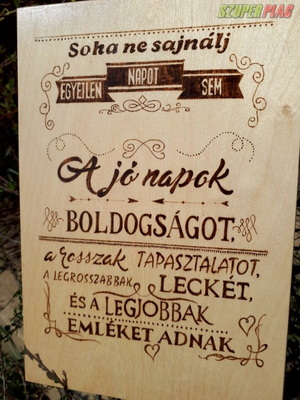 SZUPERPIAC
Soha ne sajnálj
EGYETLEN NAPOT SEM
A jó napok
BOLDOGSÁGOT,
a rosszak TAPASZTALATOT,
A LEGROSSZABBAK LECKÉT,
ÉS A LEGJOBBAK
EMLÉKET ADNAK